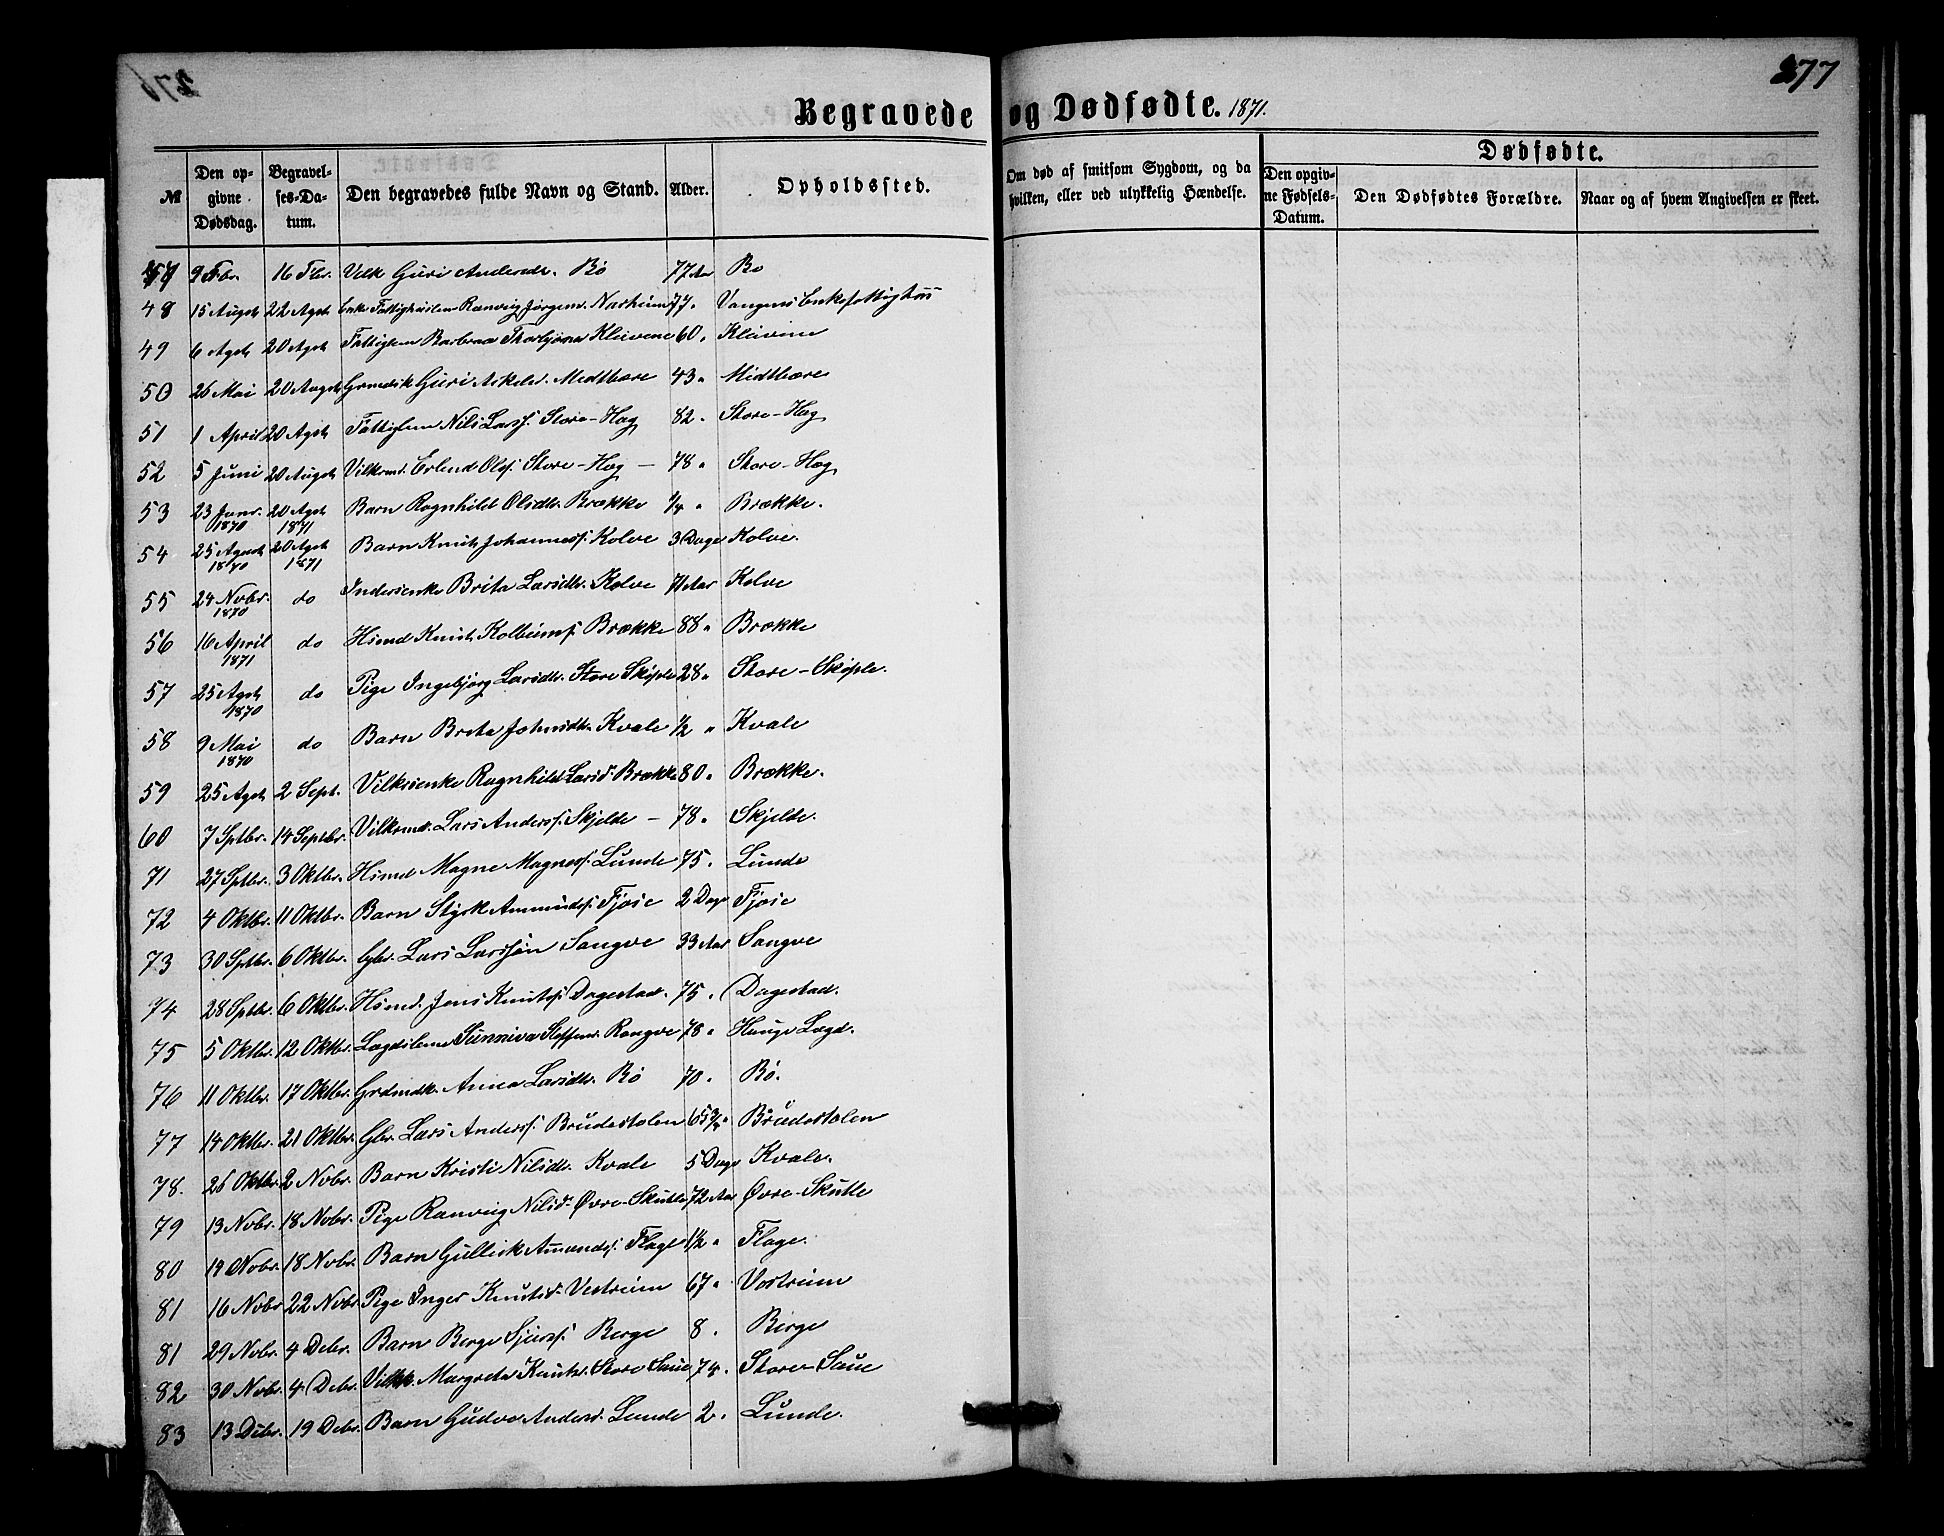 276
277
Begravede og Dødfødte. 1871.
№
Den opgivne Dødsdag.
Begravelses-Datum.
Den begravedes fulde Navn og Stand.
Alder.
Opholdssted.
Om død af smitsom Sygdom, og da hvilken, eller ved ulykkelig Hændelse.
Dødfødte.
Den opgivne Fødsels-Datum.
Den Dødfødtes Forældre.
Naar og af hvem Angivelsen er skeet.
47 9 Fbr. 16 Fbr. Vilk Guri Andersdr. Bø 77 Aar Bø
48 15 Augst 22 Agst Enke Fattighuslem Ranveig Jørgensd. Nasheim 77 " Vangens Enkefattighus
49 6 Agst 20 Agst Fattiglem Barbraa Thorbjørnsd Kleivene 60 " Kleivene
50 26 Mai 20 Augst Grmdsk Guri Askelsd. Midtbære 43 " Midtbære
51 1 April 20 Agst Fattiglem Nils Larss. Store-Hæg 82 " Store-Hæg
52 5 Juni 20 Augst Vilksmd. Erlend Olss. Store-Hæg — 78 " Store-Hæg
53 23 Janr. 1870 20 Agst 1871 Barn Ragnhild Olsdtr. Brække 1/4 " Brække.
54 25 Agust 1870 20 Agst 1871 Barn Knut Johanness. Kolve 3 Dage Kolve.
55 24 Nobr. 1870 do Inderstenke Brita Larsdtr. Kolve 71 Aar Kolve
56 16 April 1871 do Hsmd Knut Kolbeins. Brække 88 " Brække
57 25 Agst 1870 do Pige Ingebjørg Larsdtr. Store Skiple 28 " Store-Skiple.
58 9 Mai 1870 do Barn Brita Johnsdtr. Kvale 1/2 " Kvale
59 25 Agst 2 Sept. Vilksenke Ragnhild Larsd. Brække 80 " Brække.
60 7 Sptbr. 14 Septbr. Vilksmd. Lars Anderss. Skjelde — 78 " Skjelde.
71 27 Sptbr. 3 Oktbr. Hsmd Magne Magness. Lunde 75 " Lunde
72 4 Oktbr. 11 Oktbr. Barn Styrk Ammunds. Fjøse 2 Dage Fjøse
73 30 Sptbr. 6 Oktbr. Gbr. Lars Larssøn Sangve 33 Aar Sangve
74 28 Sptbr. 6 Oktbr. Hsmd. Jens Knuts. Dagestad. 75 " Dagestad.
75 5 Oktbr. 12 Oktbr. Lægdslem Sunniva Steffensd. Rongve 78 " Hauge Lægd.
76 11 Oktbr. 17 Oktbr. Grdmdk. Anna Larsdtr. Bø 70 " Bø.
77 14 Oktbr. 21 Oktbr. Gbr. Lars Anderss. Brudestolen 65 3/4 " Brudestolen
78. 26 Oktbr. 2 Nobr. Barn Kristi Nilsdtr. Kvale 5 Dage Kvale.
79 13 Nobr. 18 Nobr. Pige Ranveig Nilsd. Øvre-Skutle 72 Aar Øvre-Skutle
80 14 Nobr. 18 Nobr. Barn Gullick Amunds. Flage 1 1/2 " Flage.
81 16 Nobr 22 Nobr Pige Inger Knutsd. Vestreim 67 " Vestreim
81 29 Nobr. 4 Debr. Barn Berge Sjurss. Berge 8 " Berge
82 30 Nobr. 4 Debr. Vilkk. Margreta Knutsd. Store Saue 74 " Store-Saue
83 13 Debr. 19 Debr. Barn Gudve Andersd. Lunde 2 " Lunde.